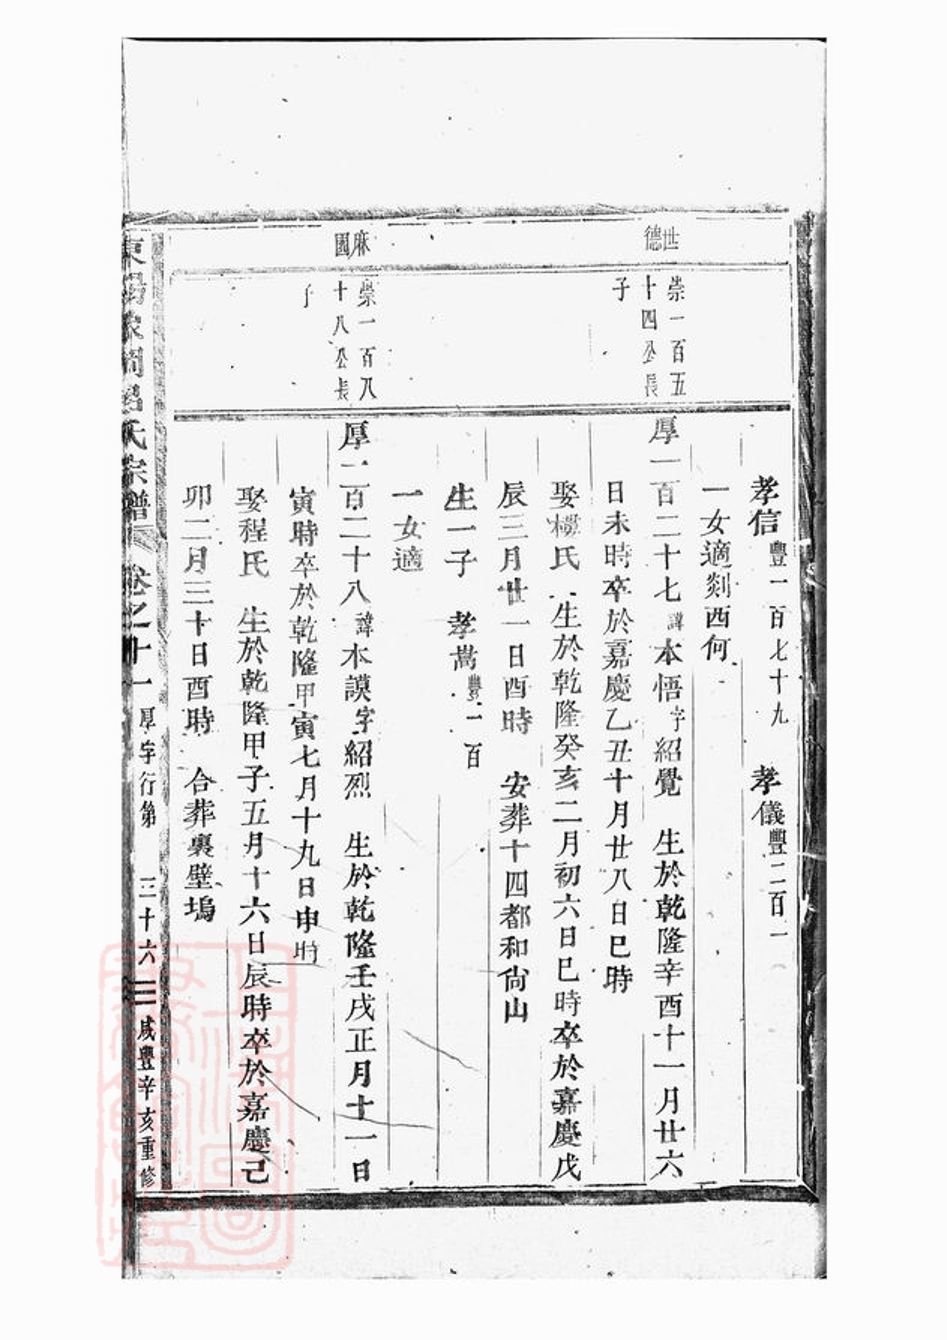 世德
崇一百五
十四公長
子
麻國
崇一百八
十八公長
子
孝信豐一百七十九 孝儀豐二百一
一女適剡西何
厚一百二十七諱本悟字紹覺 生於乾隆辛酉十一月廿六
日未時卒於嘉慶乙丑十月廿八日巳時
娶樓氏 生於乾隆癸亥二月初六日巳時卒於嘉慶戊
辰三月廿一日酉時 安葬十四都和尙山
生一子 孝嵩豐一百
一女適
厚一百二十八諱本謨字紹烈 生於乾隆壬戌正月十一日
寅時卒於乾隆甲寅七月十九日申時
娶程氏 生於乾隆甲子五月十六日辰時卒於嘉慶己
卯二月三十日酉時 合葬裏壁塢
東陽 呂氏宗譜 卷之十一 厚字行第 三十六 咸豐辛亥重修